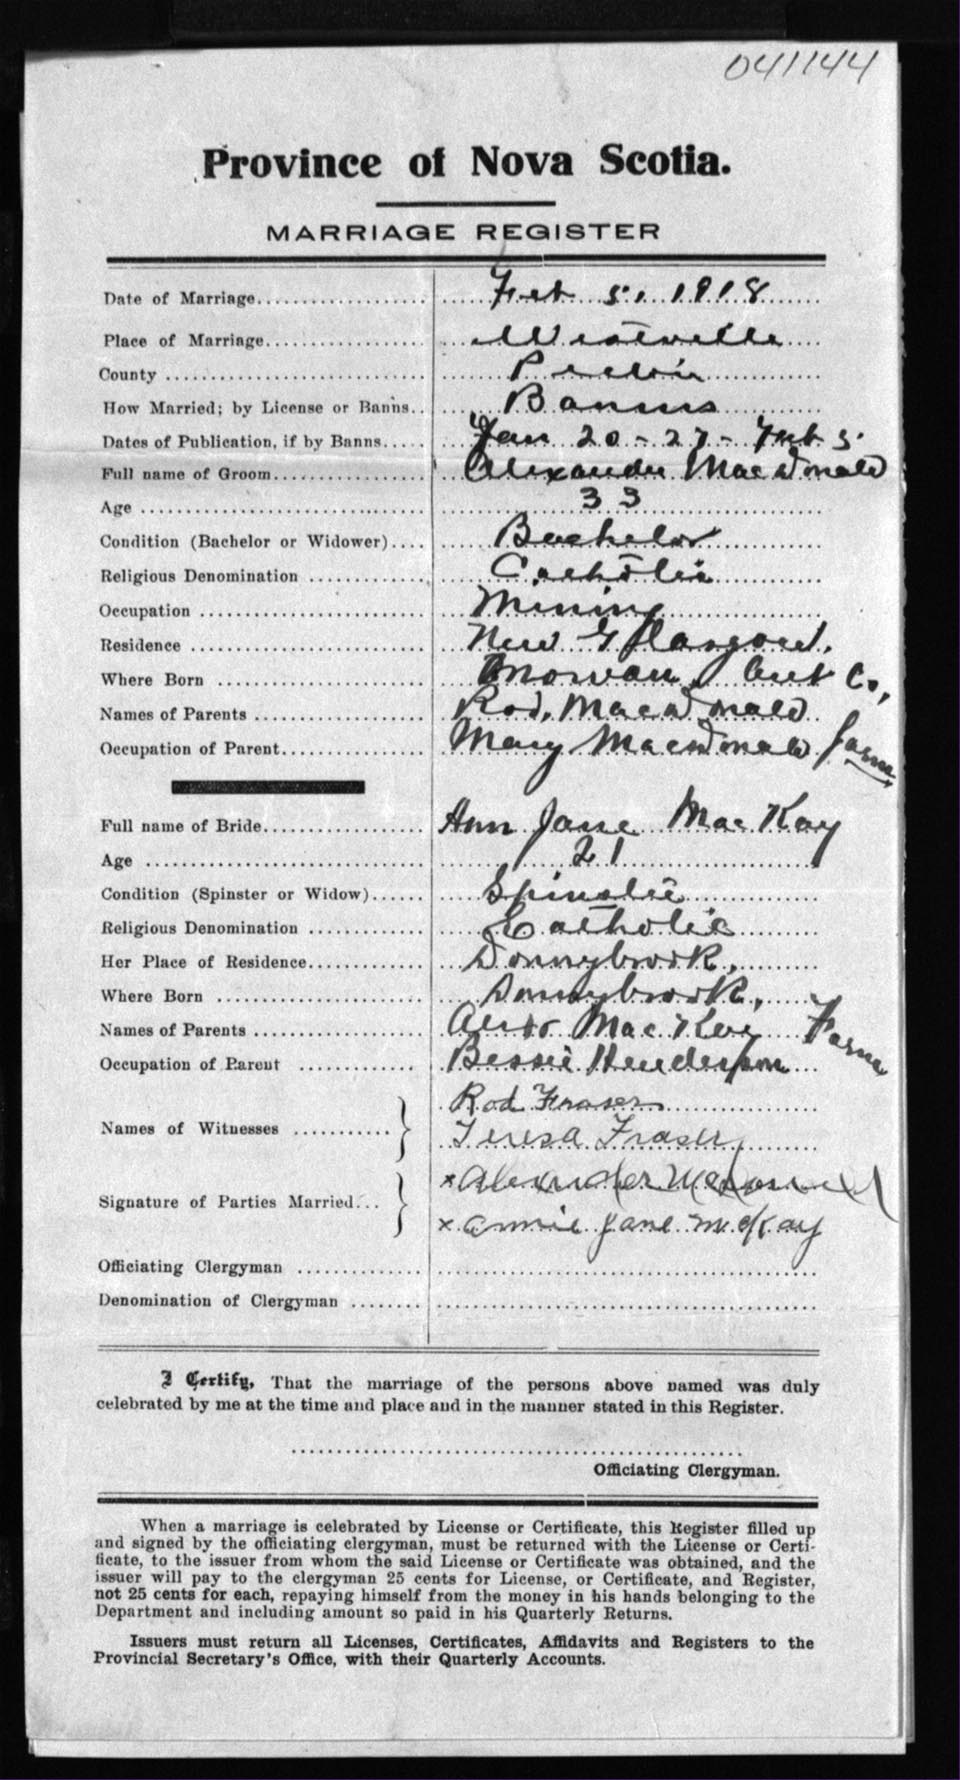 041144
Province of Nova Scotia.
MARRIAGE REGISTER
Date of Marriage Feb 5, 1918
Place of Marriage Westville
County Pictou
How Married; by License or Banns Banns
Dates of Publication, if by Banns Jan 20 - 27 - Feb 3.
Full name of Groom Alexander MacDonald
Age 33
Condition (Bachelor or Widower) Bachelor
Religious Denomination Catholic
Occupation Mining
Residence New Glasgow.
Where Born Co,
Names of Parents Rod. MacDonald
Occupation of Parent Mary MacDonald Farm
Full name of Bride Ann Jane MacKay
Age 21
Condition (Spinster or Widow) Spinster
Religious Denomination Catholic
Her Place of Residence Donnybrook,
Where Born Donnybrook,
Names of Parents MacKay Farm
Occupation of Parent Bessie Henderson
Names of Witnesses Rod Fraser
Teresa Fraser
Signature of Parties Married x Alexander McDonald
x Annie Jane McKay
Officiating Clergyman
Denomination of Clergyman
I Certify, That the marriage of the persons above named was duly
celebrated by me at the time and place and in the manner stated in this Register.
Officiating Clergyman.
When a marriage is celebrated by License or Certificate, this Register filled up
and signed by the officiating clergyman, must be returned with the License or Certi-
ficate, to the issuer from whom the said License or Certificate was obtained, and the
issuer will pay to the clergyman 25 cents for License, or Certificate, and Register,
not 25 cents for each, repaying himself from the money in his hands belonging to the
Department and including amount so paid in his Quarterly Returns.
Issuers must return all Licenses, Certificates, Affidavits and Registers to the
Provincial Secretary's Office, with their Quarterly Accounts.